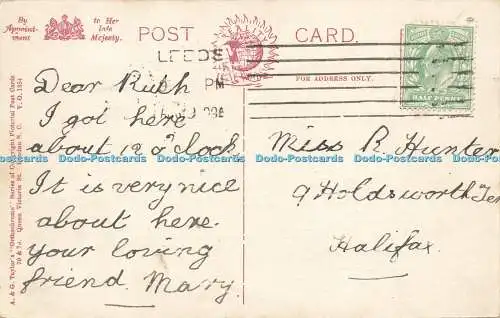 By Appointment
to Her late Majesty.
POST CARD.
FOR ADDRESS ONLY.
LEEDS
PM
HALF PENNY
Dear Ruth
I got here
about 12 o'clock
It is very nice
about here.
your loving
friend. Mary.
Miss R Hunter
9 Holdsworth Ter
Halifax.
A. & G. Taylor's "Orthochrome" Series of Copyright Pictorial Post Cards
70 & 74, Queen Victoria St., London E.C.
Dodo-Postcards Dodo-Postcards Dodo-Postcards Dodo-Postcards Dodo-Postcards Dodo-Postcards